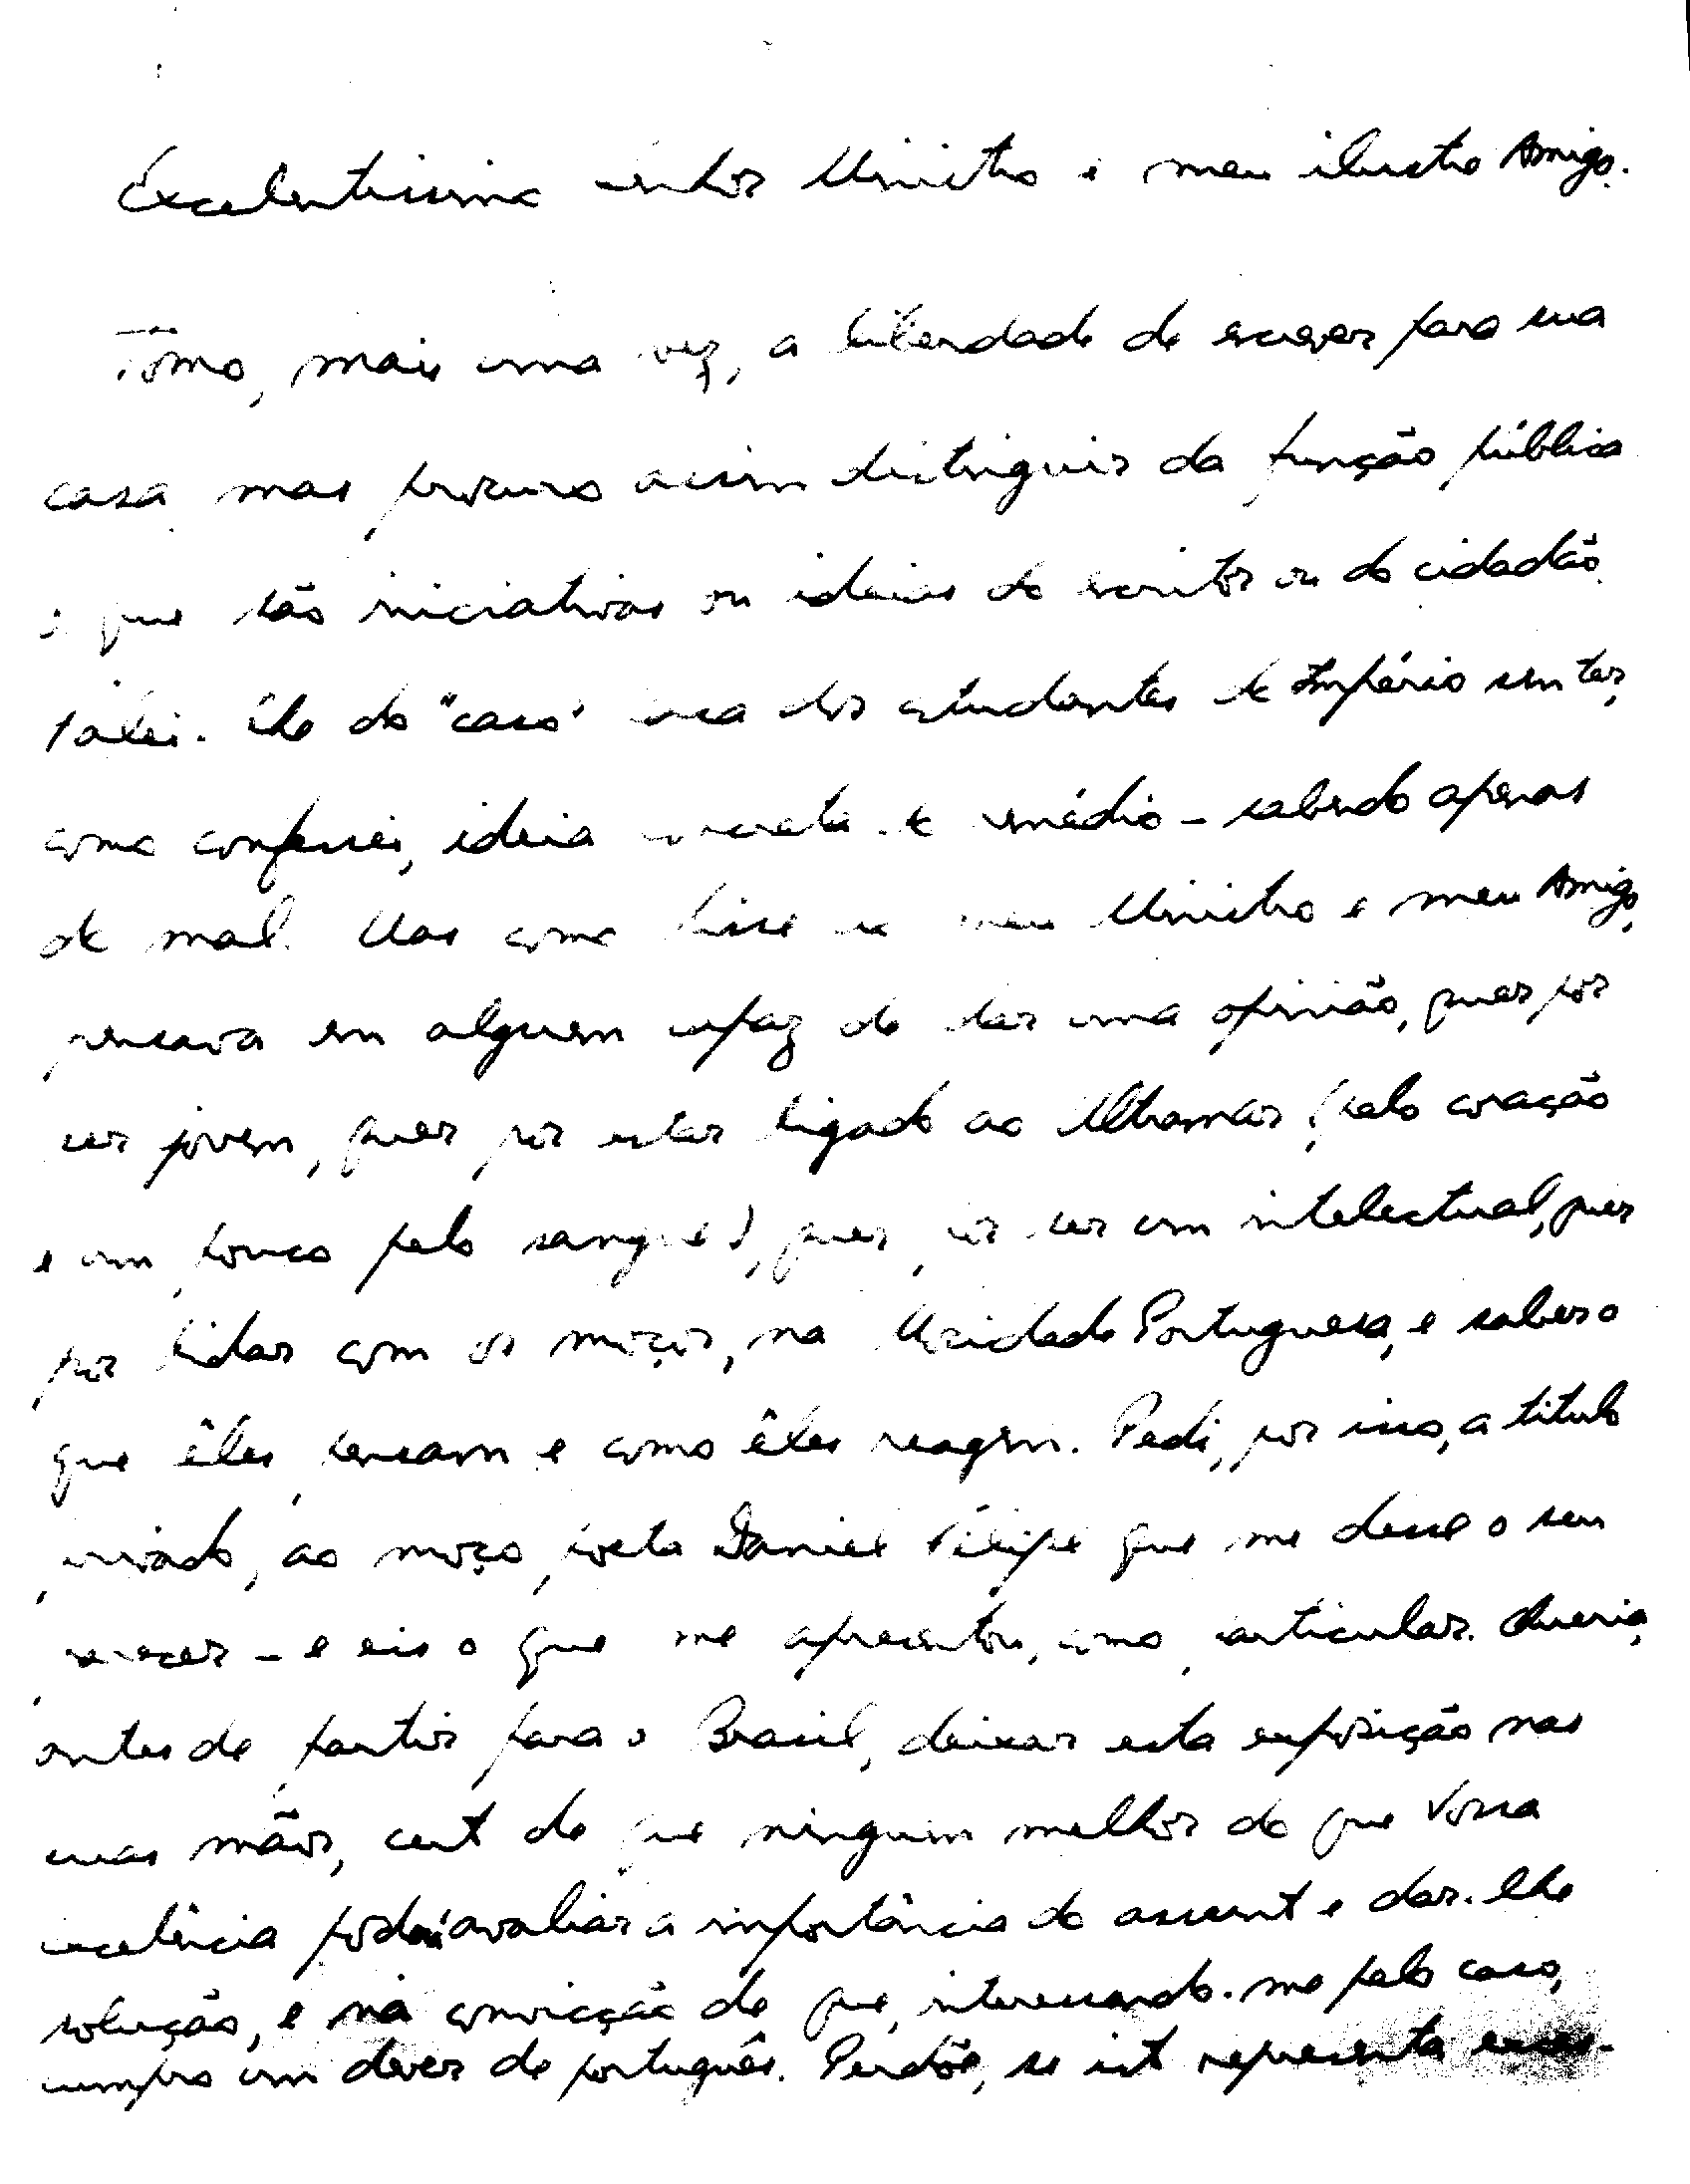 Excelentissimo senhor Ministro e meu ilustre Amigo.
Tomo, mais uma vez, a liberdade de escrever para sua
casa mas procuro assim distinguir da função pública
o que são iniciativas ou ideias do escritor ou do cidadão.
Falei-lhe do "caso" Casa dos estudantes do Império sem ter,
como confessei, ideia concreta do remédio - sabendo apenas
do mal. Mas como disse ao meu Ministro e meu Amigo,
pensava em alguem capaz de dar uma opinião, quer por
ser jovem, quer por estar ligado ao Ultramar (pelo coração
e um pouco pelo sangue), quer por ser um intelectual, quer
por lidar com os moços, na Mocidade Portuguesa, e saber o
que êles pensam e como êles reagem. Pedi, por isso, a titulo
privado, ao moço poeta Daniel Filipe que me desse o seu
parecer - e eis o que me apresentou, como particular. Queria,
antes de partir para o Brasil, deixar esta exposição nas
suas mãos, certo de que ninguem melhor do que Vossa
excelência poderá avaliar a importância do assunto e dar-lhe
solução, e na convicção de que, interessando-me pelo caso,
cumpro um dever de português. Perdôe, se isto representa